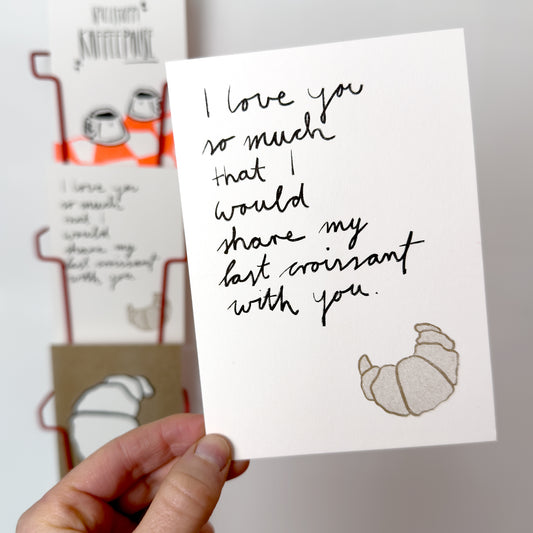 KAFFEEPAUSE
I love you
so much
that I
would
share my
last croissant
with you.
I love you
so much
that I
would
share my
last croissant
with you.